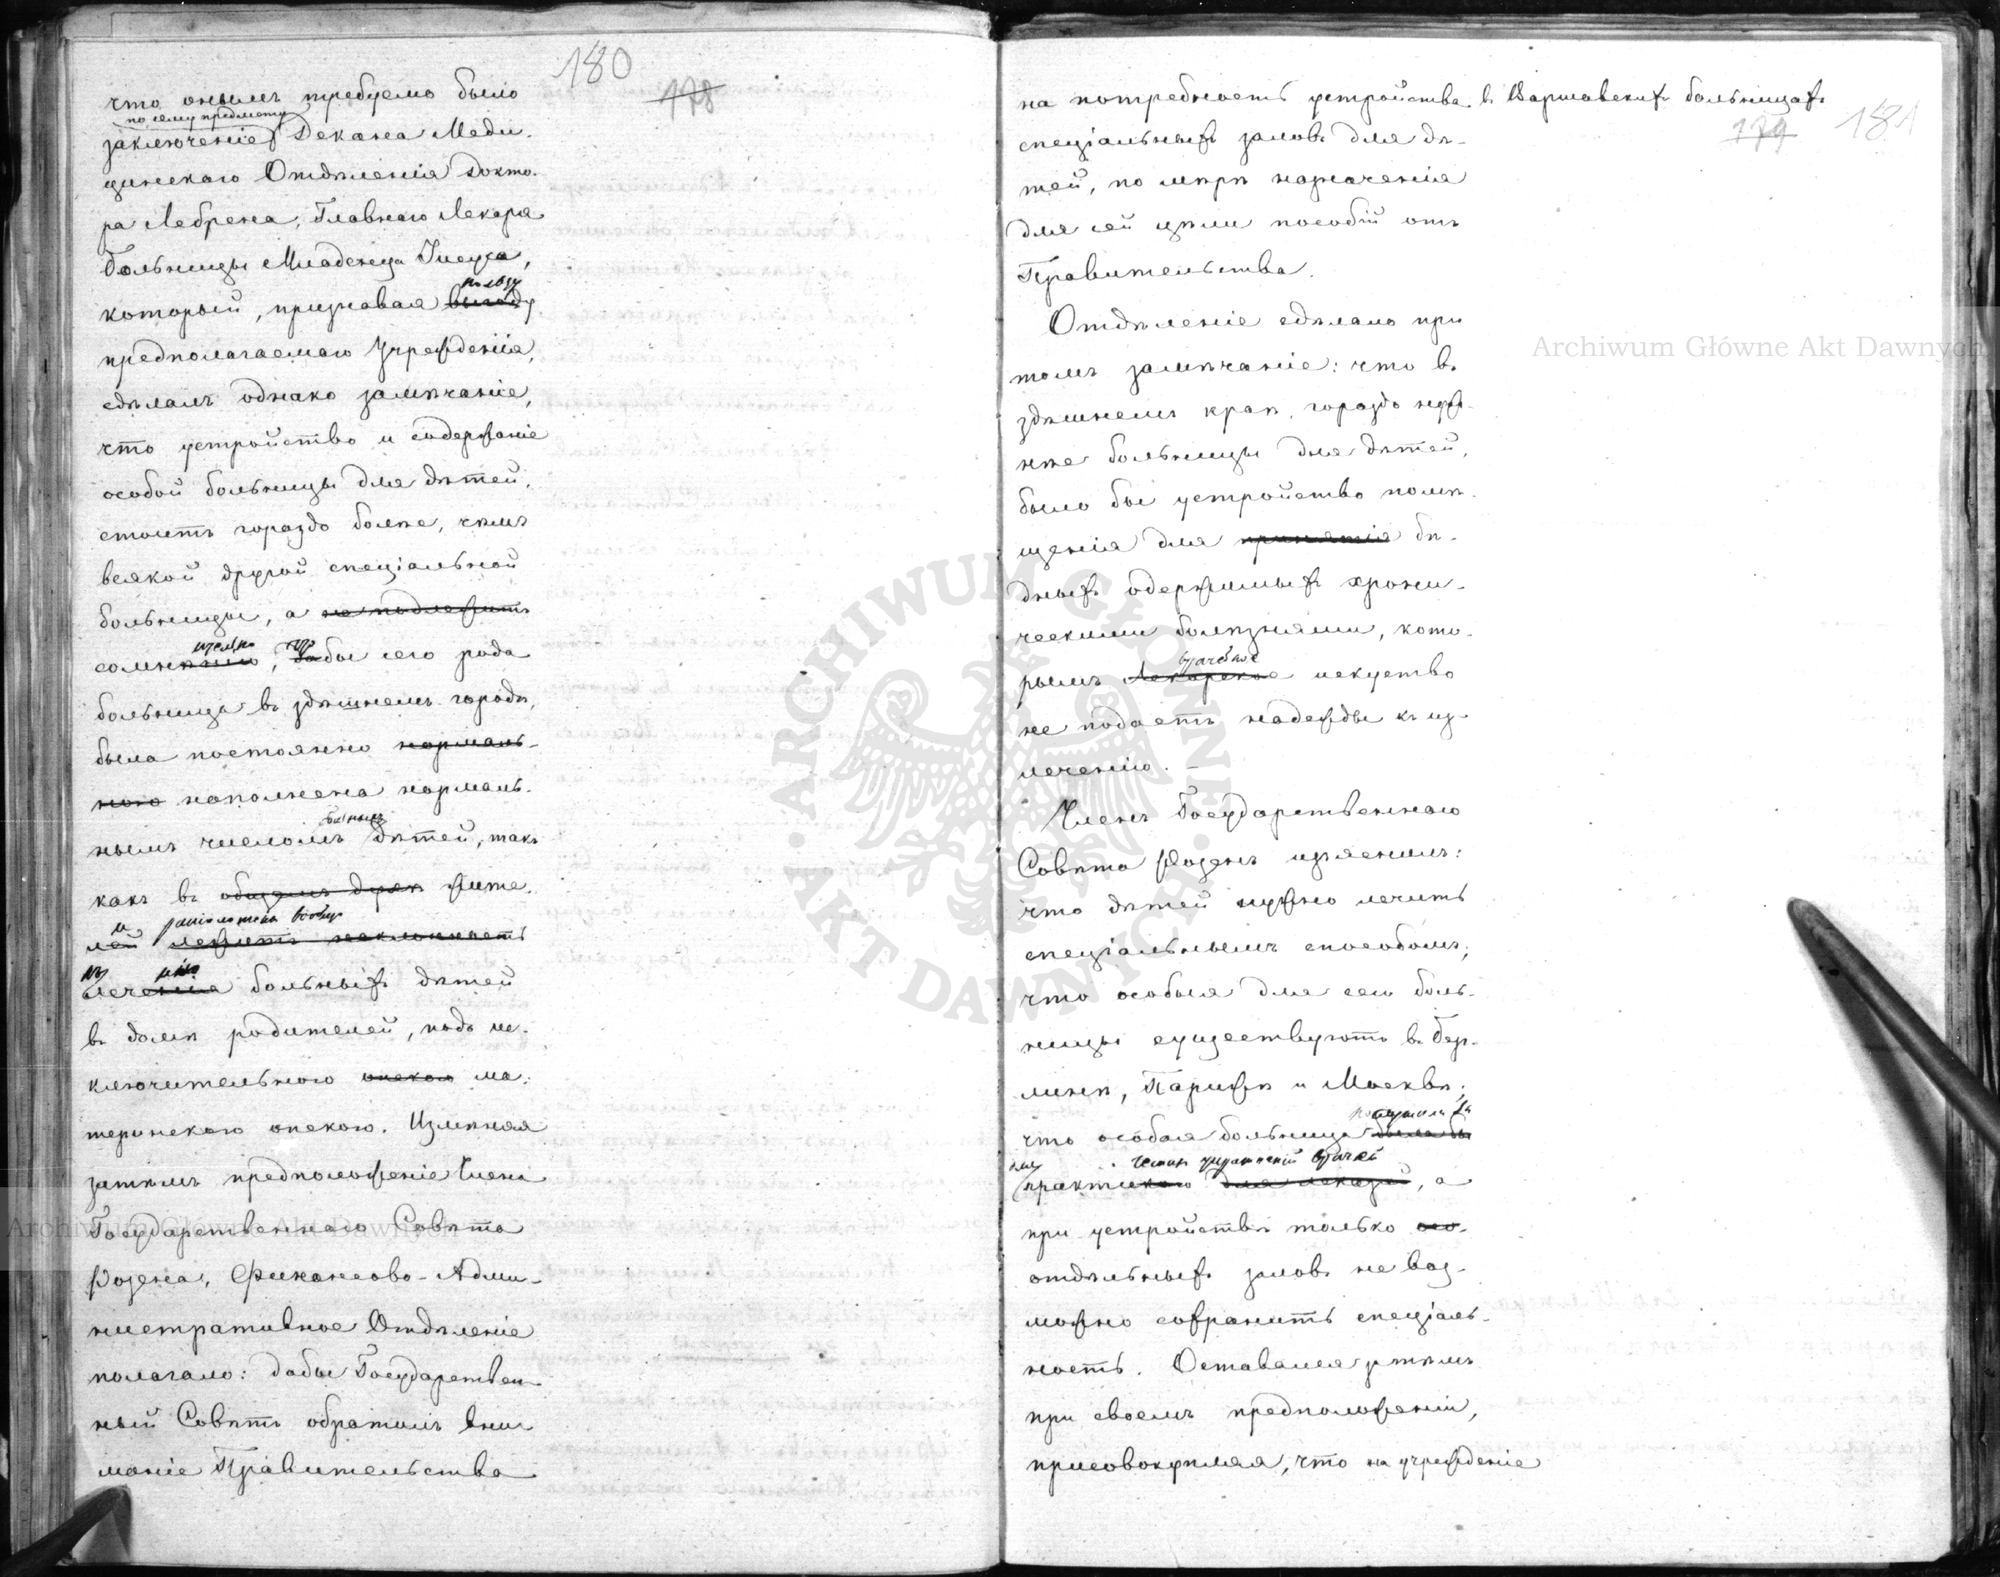 180
178
что онымъ требуемо было
по сему предмету
заключеніе Декана Меди-
цинскаго Отдѣленія Докто-
ра Лебрена, Главнаго Лекаря
Больницы Младенца Іисуса,
пользу
который, признавая выгоду
предполагаемаго Учрежденія,
сдѣлалъ однако замѣчаніе,
что устройство и содержаніе
особой больницы для дѣтей,
стоитъ гораздо болѣе, чѣмъ
всякой другой спеціальной
больницы, а не подлежитъ
сомнѣнію, дабы сего рода
больница въ здѣшнемъ городѣ,
была постоянно нормаль-
ною наполнена нормаль-
больныхъ
нымъ числомъ дѣтей, такъ
какъ въ общемъ духѣ жите-
лей лежитъ наклонность
леченія больныхъ дѣтей
въ домѣ родителей, подъ ис-
ключительною опекою ма-
теринскою опекою. Измѣняя
затѣмъ предположеніе Члена
Государственнаго Совѣта
Розена, Финансово-Адми-
нистративное Отдѣленіе
полагало: дабы Государствен-
ный Совѣтъ обратилъ вни-
маніе Правительства
179 181
на потребность устройства въ Варшавскихъ больницахъ
спеціальныхъ заловъ для дѣ-
тей, по мѣрѣ назначенія
для сей цѣли пособій отъ
Правительства.
Отдѣленіе сдѣлало при
томъ замѣчаніе: что въ
здѣшнемъ краѣ, гораздо нуж-
нѣе больницы для дѣтей,
было бы устройство помѣ-
щенія для принятія бѣ-
дныхъ одержимыхъ хрони-
ческими болѣзнями, кото-
врачебное
рымъ Лекарское искуство
не подаетъ надежды къ из-
леченію. —
Членъ Государственнаго
Совѣта Розенъ изъяснилъ:
что дѣтей нужно лечить
спеціальнымъ способомъ;
что особыя для сего боль-
ницы существуютъ въ Бер-
линѣ, Парижѣ и Москвѣ;
что особая больница была бы
врачей
практикою для лекарей, а
при устройствѣ только осо-
отдѣльныхъ заловъ не воз-
можно сохранить спеціаль-
ность. Оставался затѣмъ
при своемъ предположеніи,
присовокупляя, что на учрежденіе
Archiwum Główne Akt Dawnych
Archiwum Główne Akt Dawnych
ARCHIWUM GŁÓWNE · AKT DAWNYCH ·